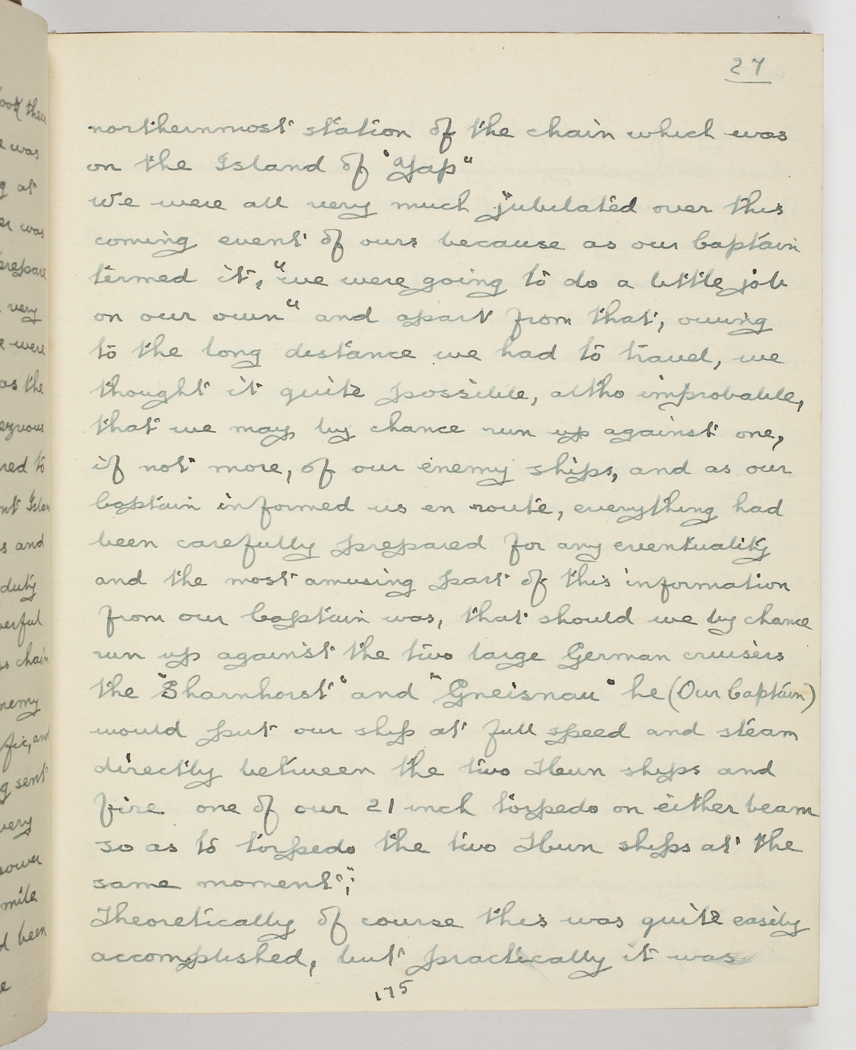 27
northernmost station of the chain which was
on the Island of "Yap"
We were all very much jubilated over this
coming event of ours because as our Captain
termed it, "we were going to do a little job
on our own" and apart from that, owing
to the long distance we had to travel, we
thought it quite possible, altho improbable,
that we may by chance run up against one,
if not more, of our enemy ships, and as our
Captain informed us en route, everything had
been carefully prepared for any eventuality
and the most amusing part of this information
from our Captain was, that should we by chance
run up against the two large German cruisers
the "Sharnhorst" and "Gneisnau" he (Our Captain)
would put our ship at full speed and steam
directly between the two Hun ships and
fire one of our 21 inch torpedo on either beam
so as to torpedo the two Hun ships at the
same moment";
Theoretically of course this was quite easily
accomplished, but practically it was
175